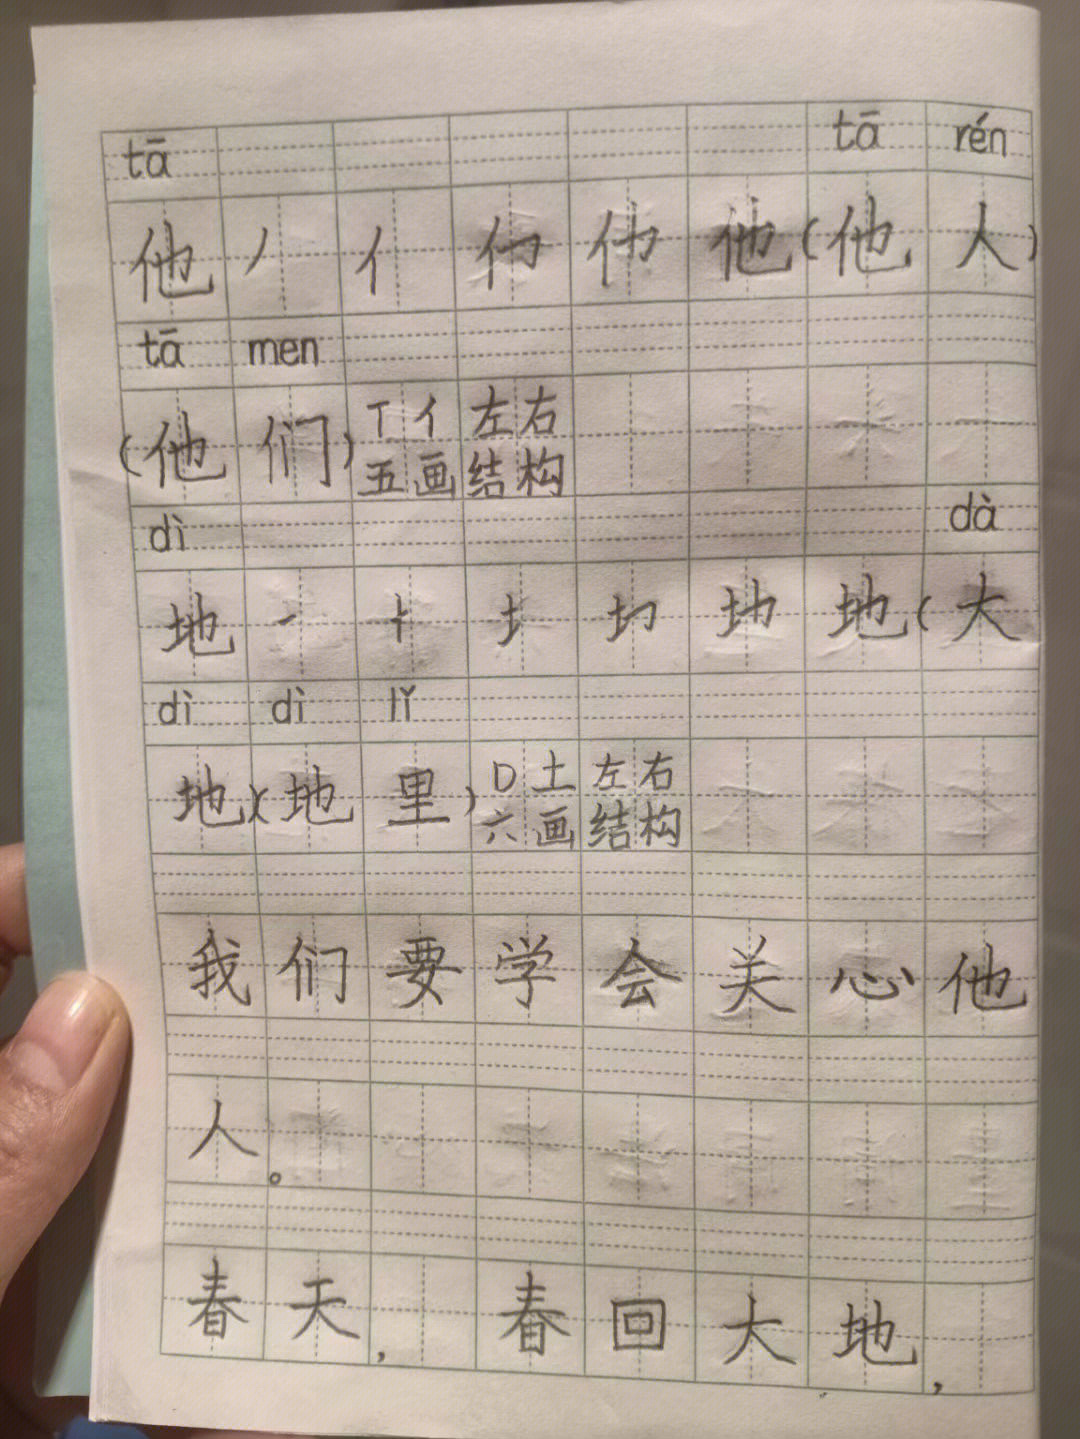 tā tā rén
他 丿 亻 他 (他 人)
tā men
(他 们) T 亻 左右
五画 结构
dì dà
地 一 十 土 地 (大
dì dì lǐ
地)(地 里) D 土 左右
六画 结构
我 们 要 学 会 关 心 他
人。
春 天, 春 回 大 地,